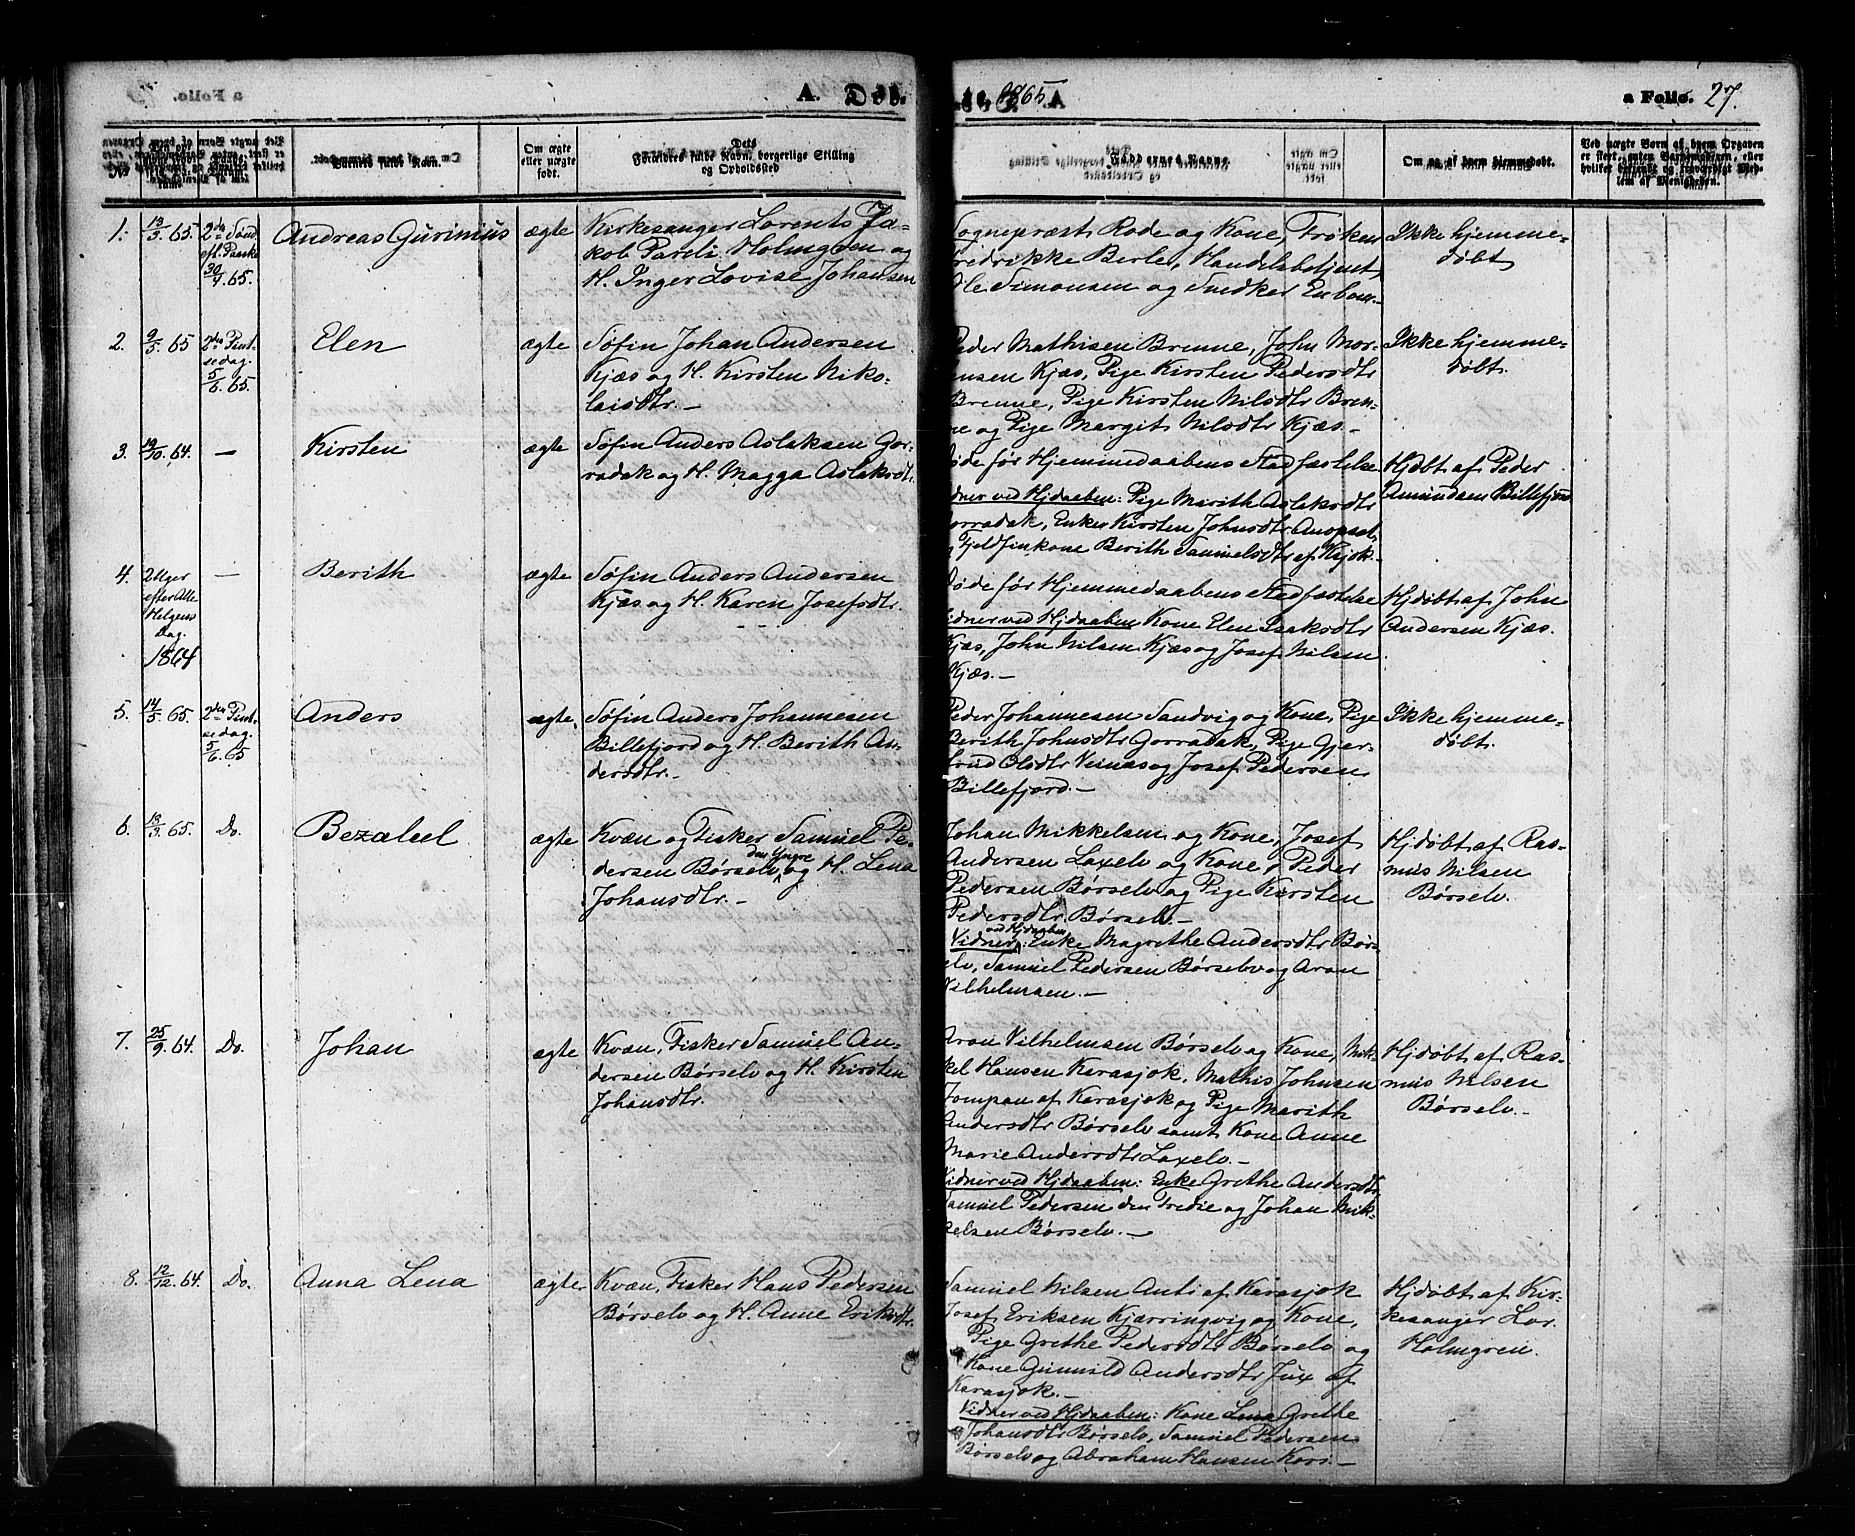 1865 A
a Folio. 27.
Om ægte
eller uægte
født.
Dets
Forældres fulde Navn, borgerlige Stilling
og Opholdssted
Faddernes Navne.
Ved uægte Børn af hvem Opgaven
er skeet, enten Barnemoderen, eller
1. 13/3 65. 2den Sönd. eft. Paaske 30/4 65. Andreas Gurinius ægte
Kirkesanger Lorents Ja-
kob Pauli Holmgren og
H. Inger Lovise Johansen
Sognepræst Rode og Kone, Frøken
Fredrikke Berle, Handelsbetjent
Ole Simonsen og Snedker Enbom.
Ikke hjemme-
døbt
2. 9/5. 65 2den Pint-
sedag. 5/6. 65. Elen ægte
Søfin Johan Andersen
Kjæs og H. Kirsten Niko-
laisdtr. —
Peder Mathisen Brenne, John Mor-
tensen Kjæs, Pige Kirsten Pedersdtr
Brenne, Pige Kirsten Nilsdtr Bren-
ne og Pige Margit Nilsdtr Kjæs. —
Ikke hjemme-
døbt.
3. 19/10. 64. — Kirsten ægte
Søfin Anders Aslaksen Gor-
radak og H. Magga Aslaksdtr.
Døde før Hjemmedaabens Stadfæstelse
Vidner ved Hjdaaben: Pige Marith Aslaksdtr
Gorradak, Enke Kirsten Johnsdtr
og Fjeldfinkone Berith Samuelsdtr af
Hjdøbt af Peder
Amundsen Billefjord
4. 2 Uger
efter Alle
Helgens
Dag.
1864
— Berith ægte
Søfin Anders Andersen
Kjæs og H. Karen Josefsdtr.
Døde før Hjemmedaabens Stadfæstelse
Vidner ved Hjdaaben Kone Elen Isaksdtr
Kjæs, John Nilsen Kjæs og Josef Nilsen
Kjæs. —
Hjdøbt af John
Andersen Kjæs.
5. 14/5. 65. 2den Pint-
sedag. 5/6. 65 Anders ægte
Søfin Anders Johannesen
Billefjord og H. Berith An-
dersdtr. —
Peder Johannesen Sandvig og Kone, Pige
Berith Johnsdtr Gorradak, Pige Gjer-
trud Olsdtr Veinæs og Josef Pedersen
Billefjord. —
Ikke hjemme-
døbt.
6. 13/3. 65. Do. Bezaleel ægte
Kvæn og Fisker Samuel Pe-
dersen Børselv den Yngre og H. Lena
Johansdtr. —
Johan Mikkelsen og Kone, Josef
Andersen Laxelv og Kone, Peder
Pedersen Børselv og Pige Kirsten
Pedersdtr Børselv —
Vidner ved Hjdaaben: Enke Magrethe Andersdtr Børs-
elv, Samuel Pedersen Børselv og Aron
Vilhelmsen. —
Hjdøbt af Ras-
mus Nilsen
Børselv.
7. 25/9. 64. Do. Johan ægte
Kvæn, Fisker Samuel An-
dersen Børselv og H. Kirsten
Johansdtr.
Aron Vilhelmsen Børselv og Kone, Mik-
kel Hansen Karasjok, Mathis Johnsen
Jompan af Karasjok og Pige Marith
Andersdtr Børselv samt Kone Anne
Marie Andersdtr Laxelv. —
Vidner ved Hjdaaben: Enke Grethe Andersdtr,
Samuel Pedersen den Tredie og Johan Mik-
kelsen Børselv. —
Hjdøbt af Ras-
mus Nilsen
Børselv. —
8. 12/12. 64. Do. Anna Lena ægte
Kvæn, Fisker Hans Pedersen
Børselv og H. Anne Eriksdtr.
Samuel Nilsen Anti af Karasjok
Josef Eriksen Kjærringvig og Kone,
Pige Grethe Pedersdtr Børselv og
Kone Gunnild Andersdtr Jux af
Karasjok. —
Vidner ved Hjdaaben: Kone Lena Grethe
Johansdtr Børselv, Samuel Pedersen
Børselv og Abraham Hansen
Hjdøbt af Kir-
kesanger Lor.
Holmgren.